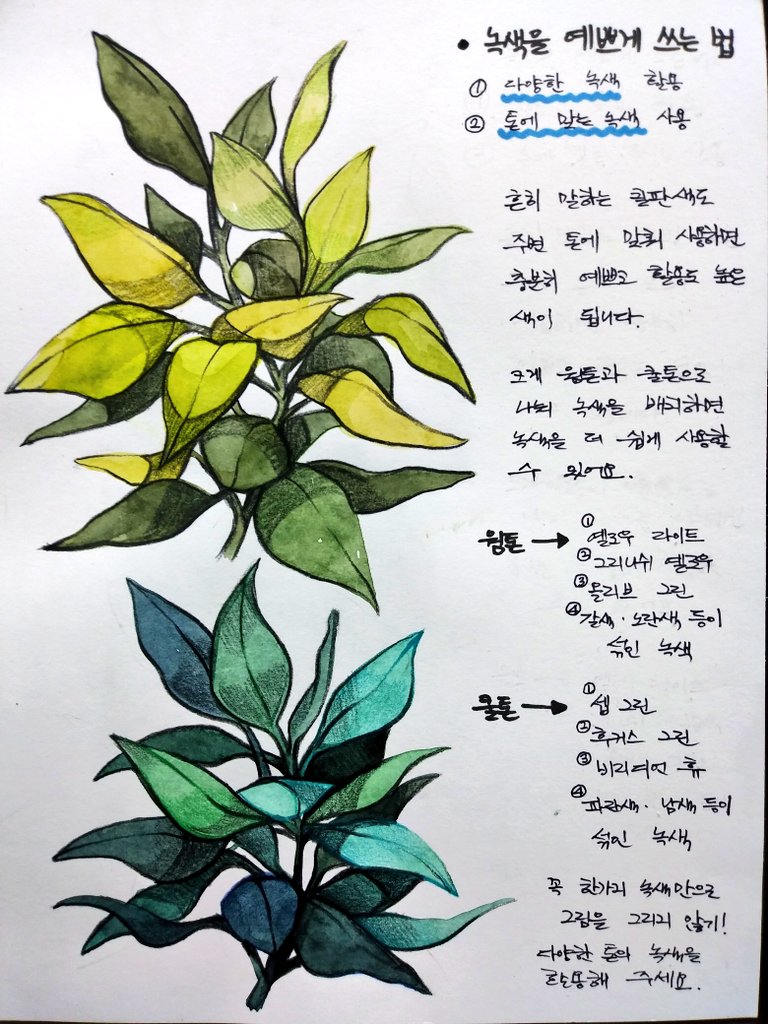 • 녹색을 예쁘게 쓰는 법
① 다양한 녹색 활용
② 톤에 맞는 녹색 사용
흔히 말하는 팔판색도
주변 톤에 맞춰 사용하면
충분히 예쁘고 활용도 높은
색이 됩니다.
크게 웜톤과 쿨톤으로
나눠 녹색을 배치하면
녹색을 더 쉽게 사용할
수 있어요.
웜톤 → ① 옐로우 라이트
② 그리니쉬 옐로우
③ 올리브 그린
④ 갈색·노란색 등이
섞인 녹색
쿨톤 → ① 셉 그린
② 후커스 그린
③ 비리디언 휴
④ 파란색·남색 등이
섞인 녹색
꼭 한가지 녹색만으로
그림을 그리지 않기!
다양한 톤의 녹색을
활용해 주세요.